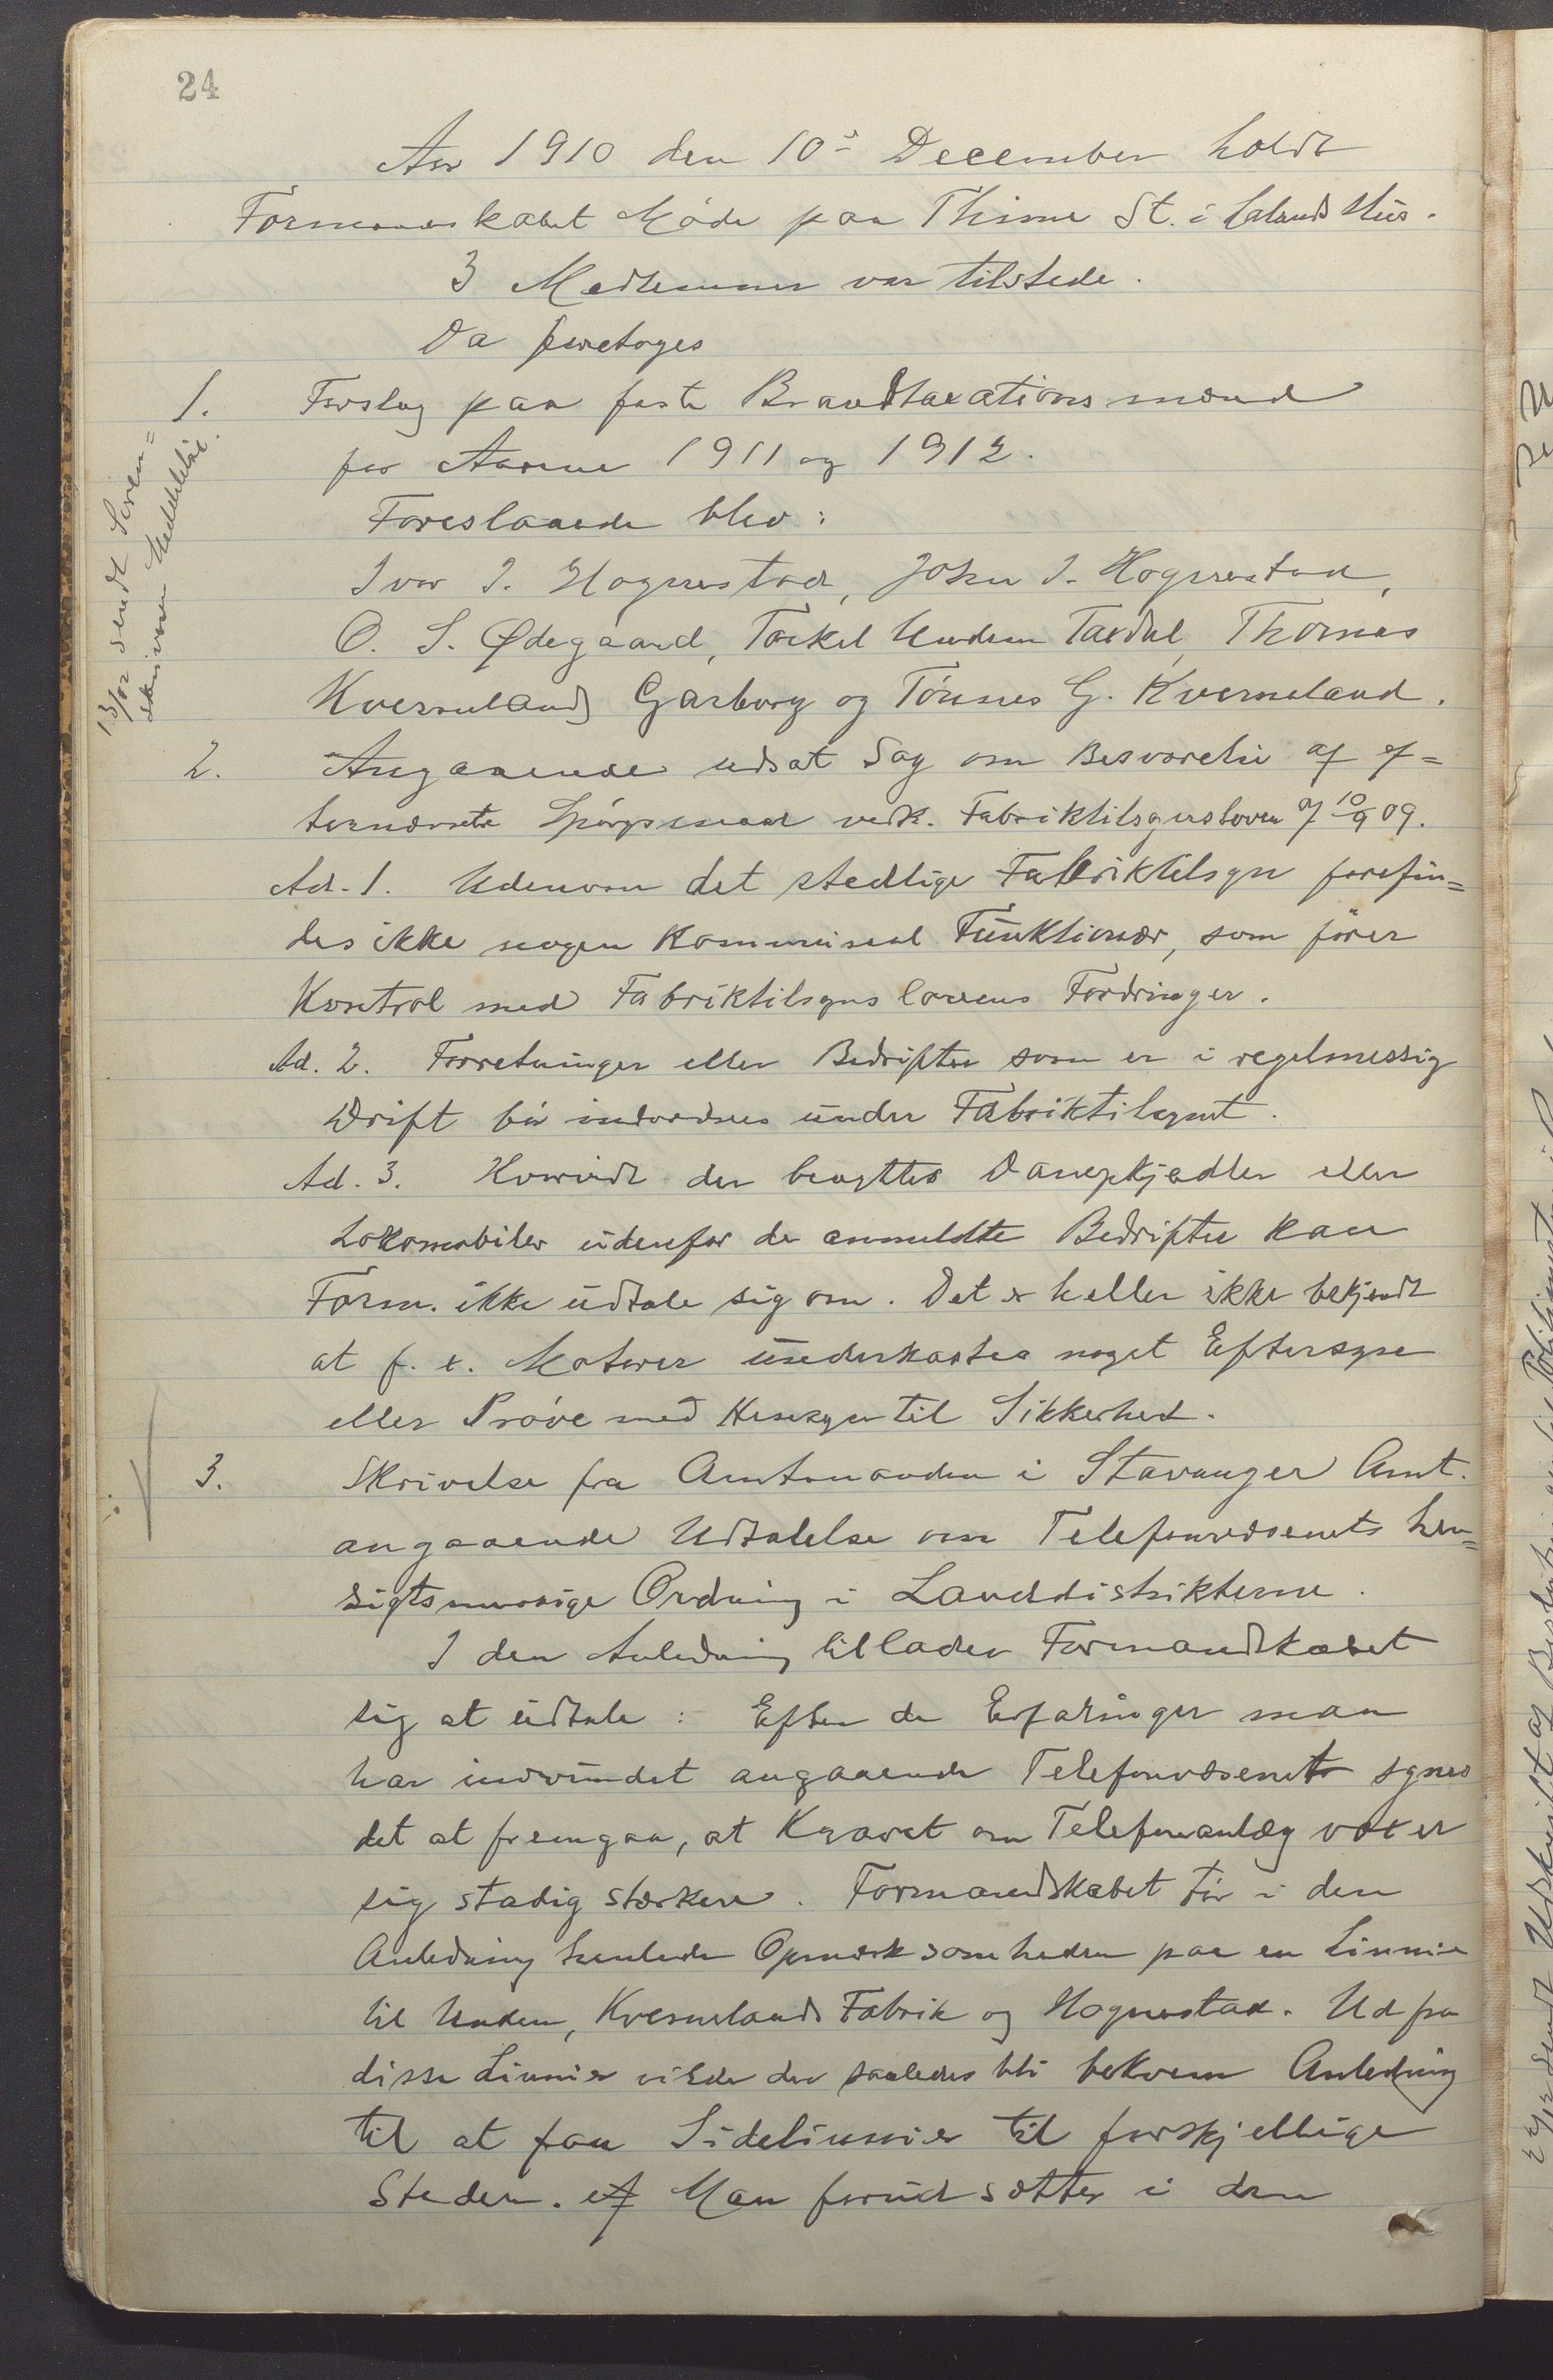 24
Aar 1910 den 10de December holdt
Formandskabet Møde paa Thime St. i Lalands Hus.
3 Medlemmer var tilstede.
Da foretoges
1. Forslag paa faste Brandtaxationsmænd
for Aarene 1911 og 1912.
Foreslaaede blev:
Ivar I. Hognestad, John I. Hognestad,
O. S. Ødegaard, Torkel Undem Taxdal, Thomas
Kverneland, Garborg og Tönnes G. Kverneland.
13/12 sendt Soren=
skriveren Meddelelse.
2. Angaaende udsat Sag om Besvarelse af ef=
ternævnte Spörgsmaal vedk. Fabriktilsynsloven af 10/9 09.
Ad. 1. Udenom det stedlige Fabriktilsyn forefin=
des ikke nogen Kommunal Funktionær, som förer
Kontrol med Fabriktilsynslovens Fordringer.
Ad. 2. Forretninger eller Bedrifter som er i regelmessig
Drift bör indordnes under Fabriktilsynet.
Ad. 3. Hvorvidt der benyttes Dampkjedler eller
Lokomobiler udenfor de anmeldte Bedrifter kan
Form. ikke udtale sig om. Det er heller ikke bekjendt
at f. x. Motorer underkastes noget Eftersyn
eller Pröve med Hensyn til Sikkerhed.
3. Skrivelse fra Amtmanden i Stavanger Amt.
angaaende Udtalelse om Telefonvæsenets hen=
sigtsmæssige Ordning i Landdistrikterne.
I den Anledning tillader Formandskabet
sig at udtale: Efter de Erfaringer man
har indvundet angaaende Telefonvæsenet synes
det at fremgaa, at Kravet om Telefonanlæg voxer
sig stadig stærkere. Formandskabet tör i den
Anledning henlede Opmærksomheden paa en Linnie
til Undem, Kvernelands Fabrik og Hognestad. Ud fra
disse Linnier vilde der saaledes bli bekvem Anledning
til at faa Sidelinnier til forskjellige
Steder. Man forudsætter i den